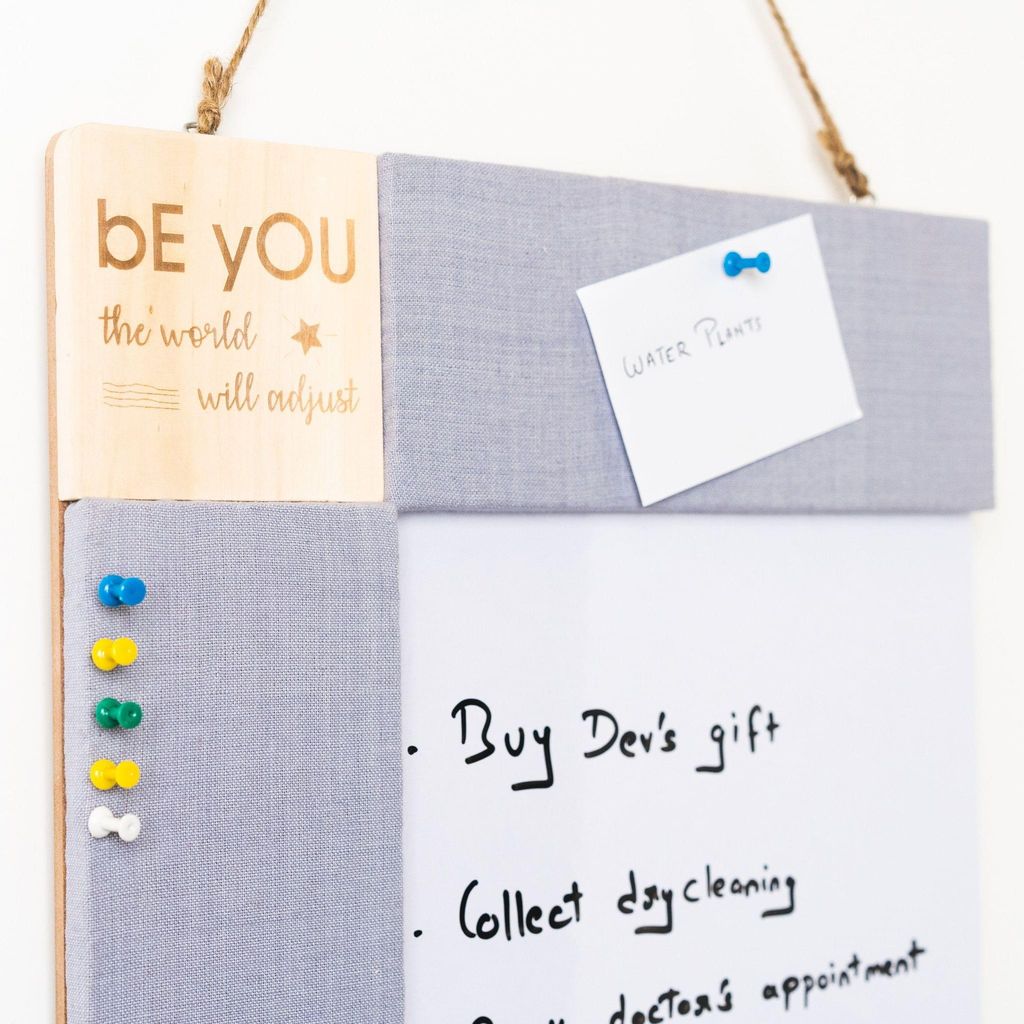 bE yOU
the world
will adjust
WATER PLANTS
. Buy Dev's gift
. Collect dry cleaning
doctor's appointment